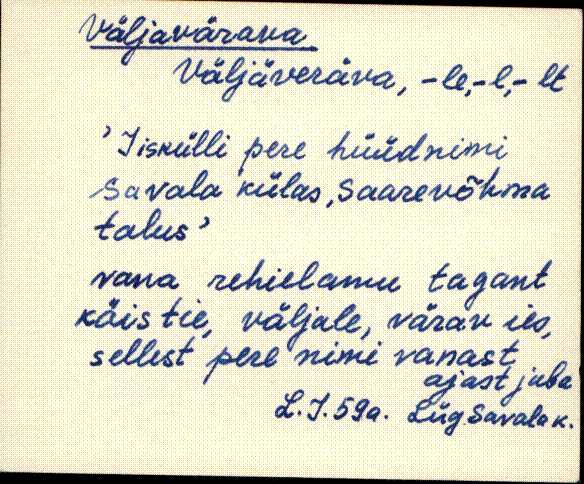 Väljavärava
Väljäveräva, -le,-l,-lt
'Iiskülli pere hüüdnimi
Savala külas, Saarevõhma
talus'
vana rehielamu tagant
käis tie, väljale, värav ies,
sellest pere nimi vanast
ajast juba
L.I. 59a. Lüg Savala k.